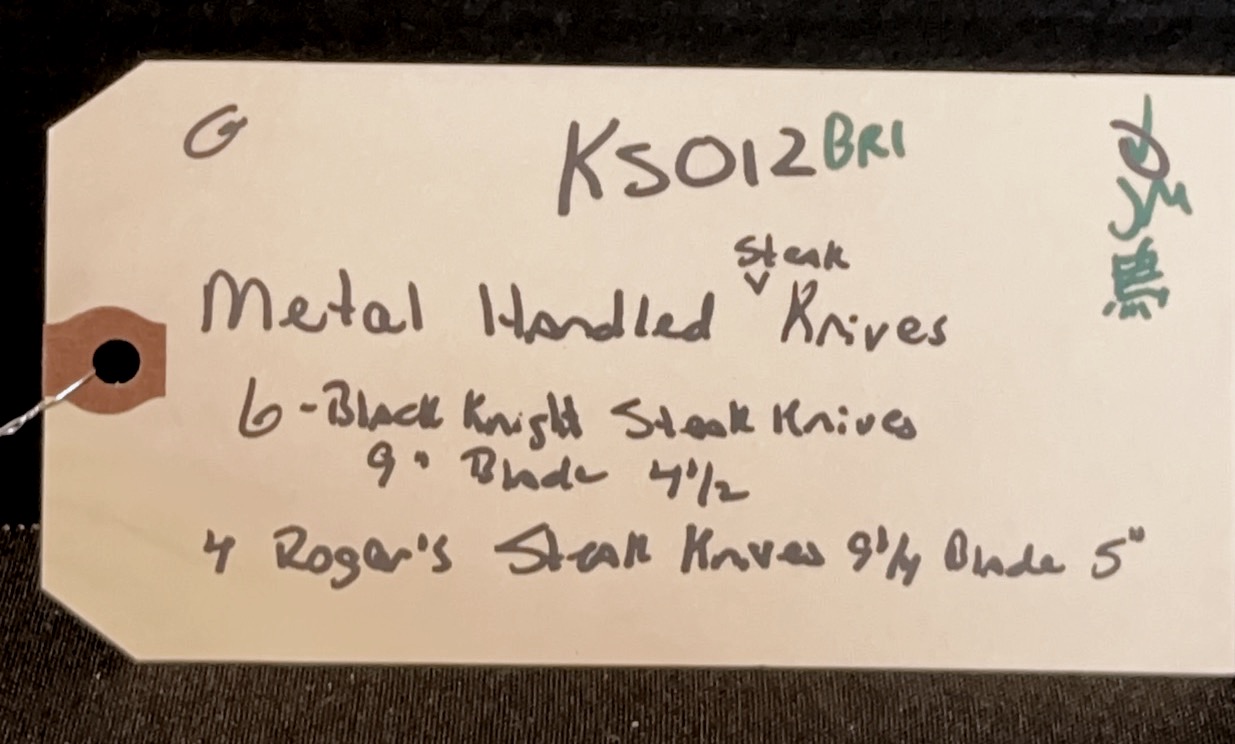 G
KS012 BR1
Metal Handled Steak Knives
6 - Black Knight Steak Knives
9" Blade 4 1/2
4 Roger's Steak Knives 9 1/4 Blade 5"